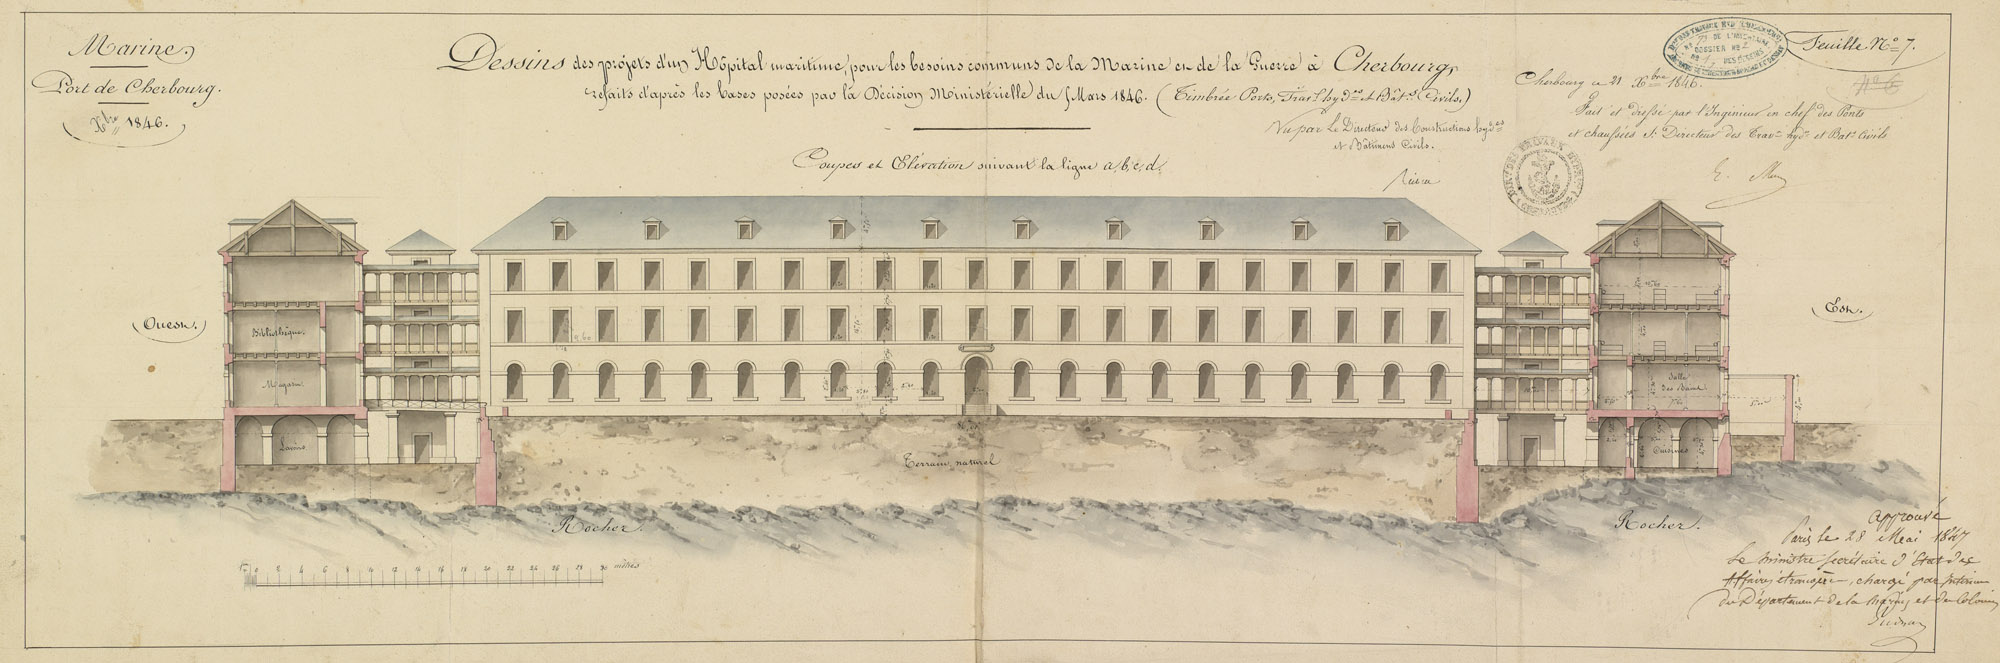 Marine.
Port de Cherbourg.
Xbre 1846.
Dessins des projets d'un Hôpital maritime, pour les besoins communs de la Marine et de la Guerre à Cherbourg,
refaits d'après les bases posées par la Décision Ministérielle du 5 Mars 1846. (Timbrée Ports, Travx hydques et Bâts Civils.)
Vu par Le Directeur des Constructions hydes
et Bâtimens Civils.
Coupes et Elévation suivant la ligne a, b, c, d.
Feuille No 7.
No 6
Cherbourg ce 21 Xbre 1846.
Fait et dressé par l'Ingénieur en chef des Ponts
et chaussées S. Directeur des Travx hydes et Bats Civils
DOSSIER No
Ouest.
Est.
Bibliothèque.
Magasin.
Lavoirs
Salle
des Bains
Cuisines
Terrain naturel
Rocher.
Rocher.
0 2 4 6 8 10 12 14 16 18 20 22 24 26 28 30 mètres
approuvé
Paris le 28 Mai 1847
Le ministre secrétaire d'Etat des
Affaires étrangères, chargé par interim
du Département de la Marine et des Colonies
Guizot